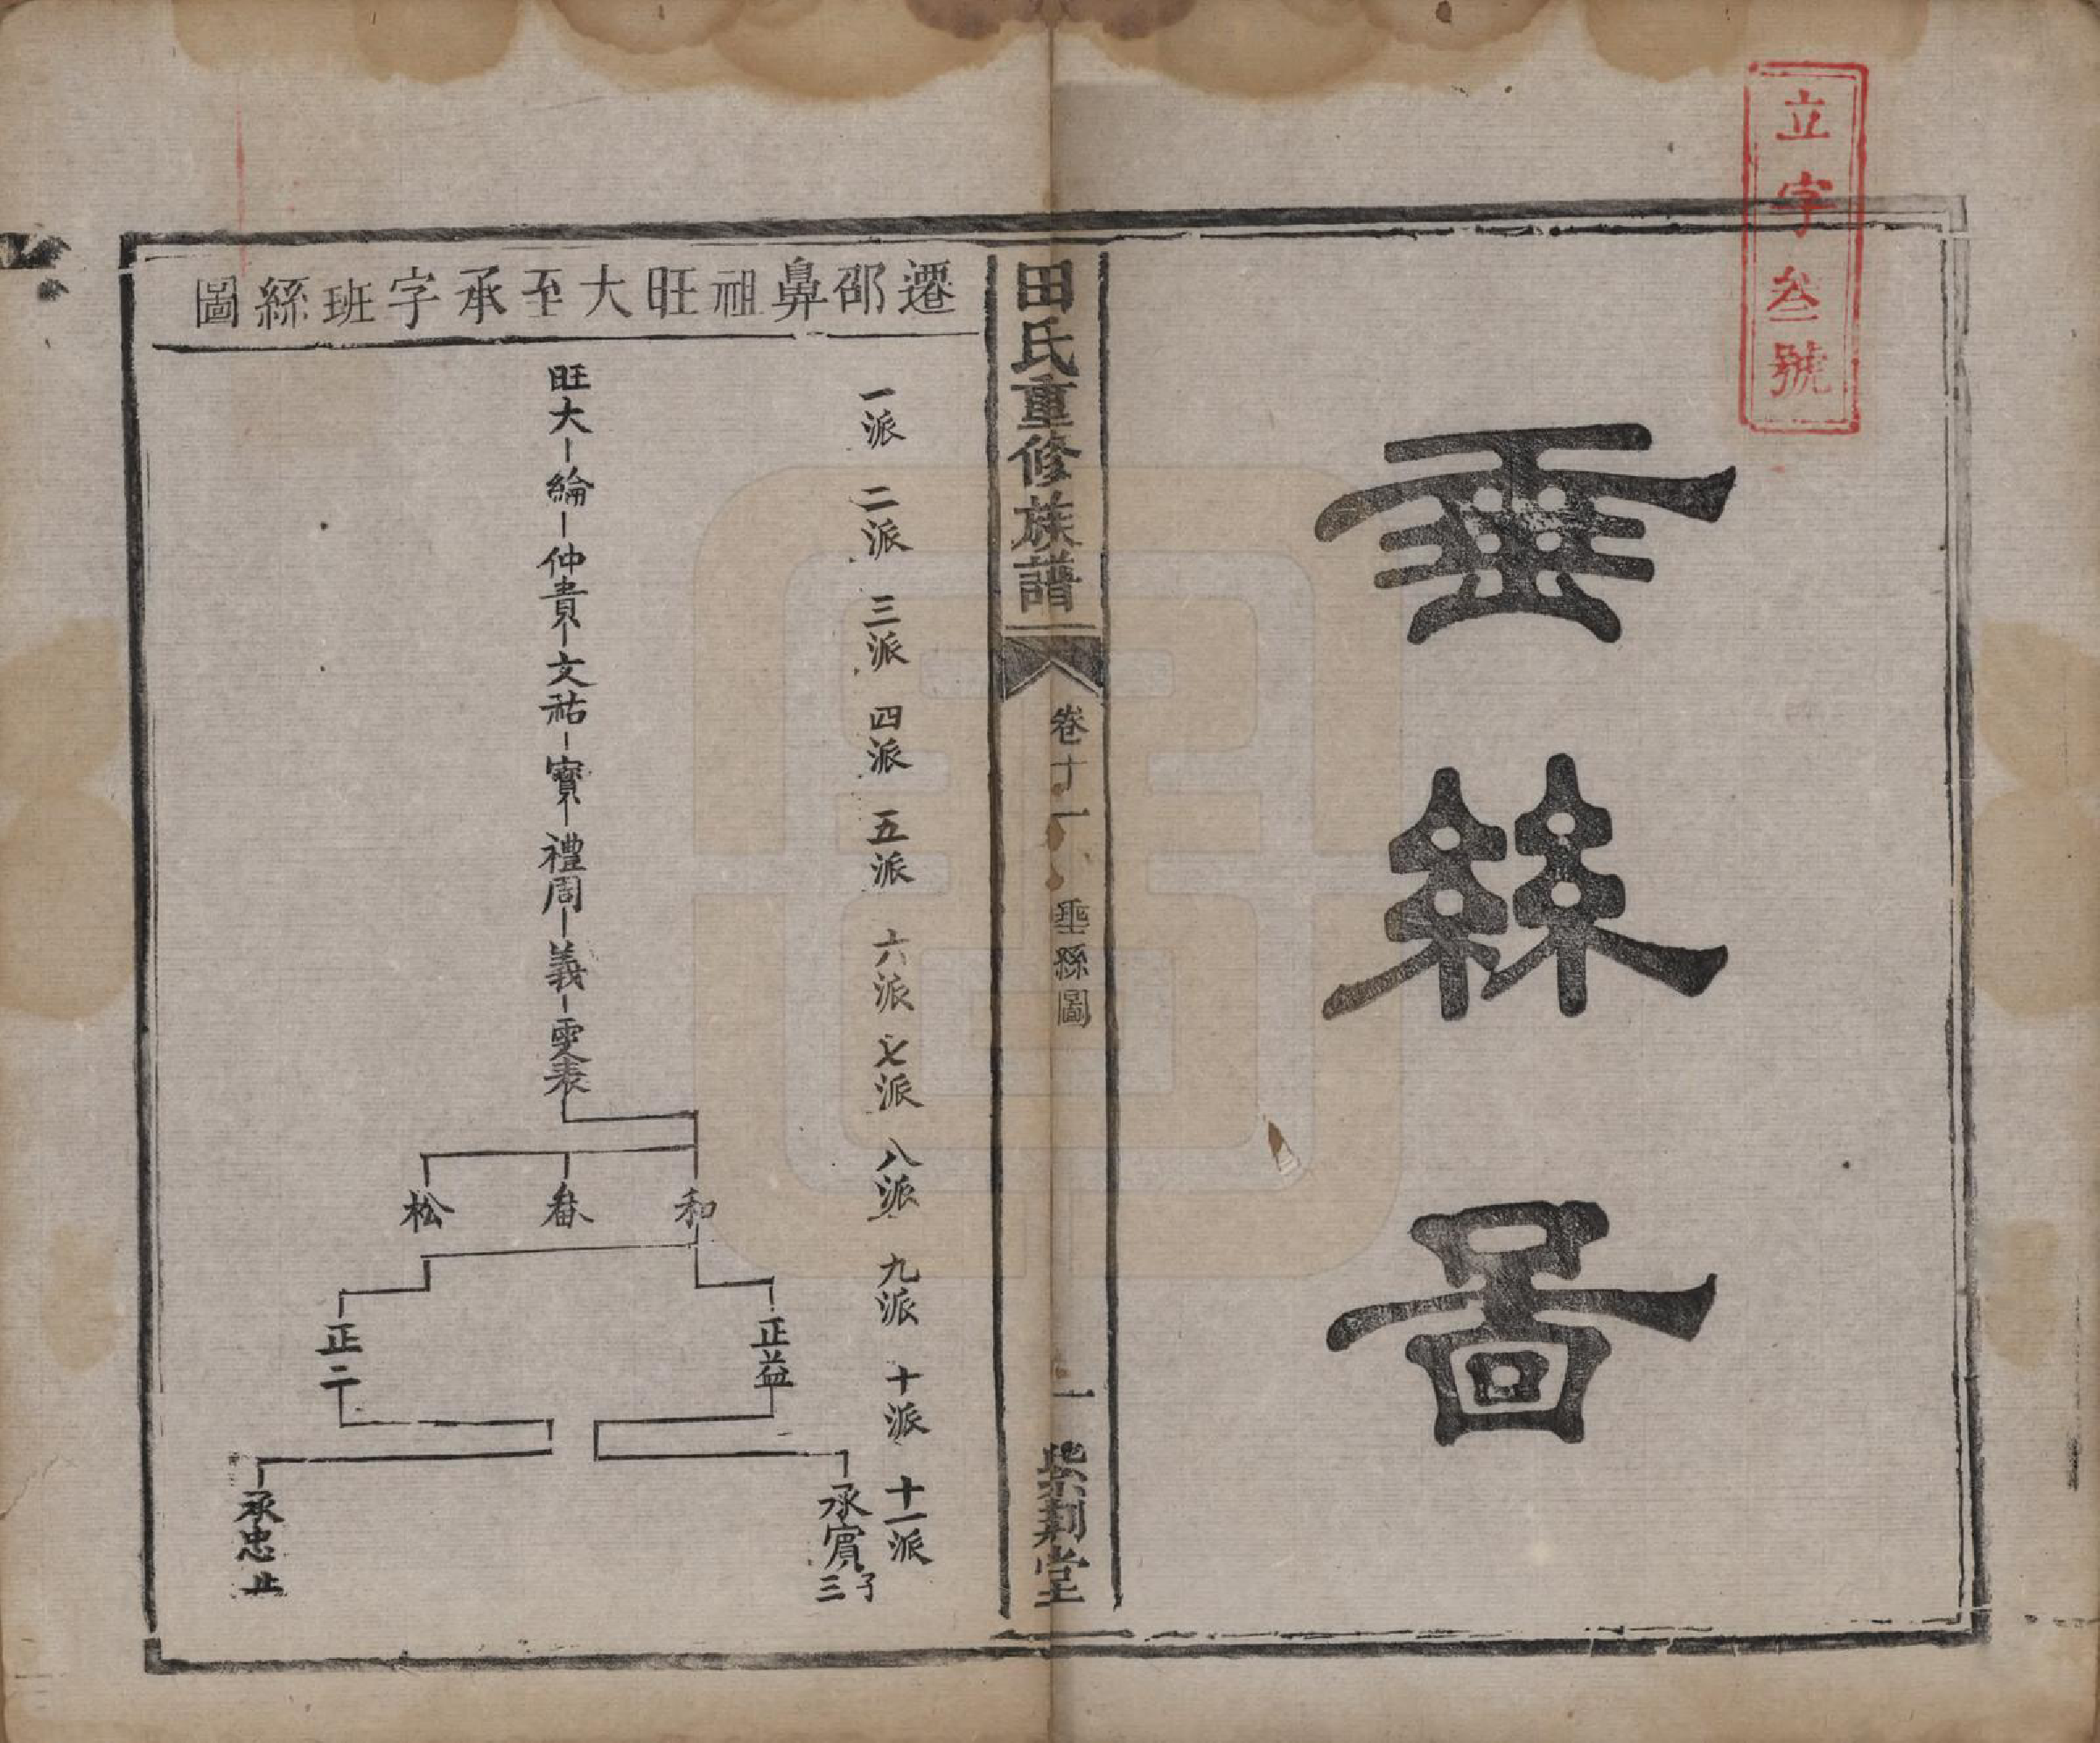 立字叁號
垂絲圖
田氏重修族譜
卷十一
垂絲圖
一
紫荆堂
遷邵鼻祖旺大至承字班絲圖
一派
二派
三派
四派
五派
六派
七派
八派
九派
十派
十一派
旺大
綸
仲貴
文祐
寳
禮周
義
雯表
和
松
正益
正二
承賔
子三
承忠
止